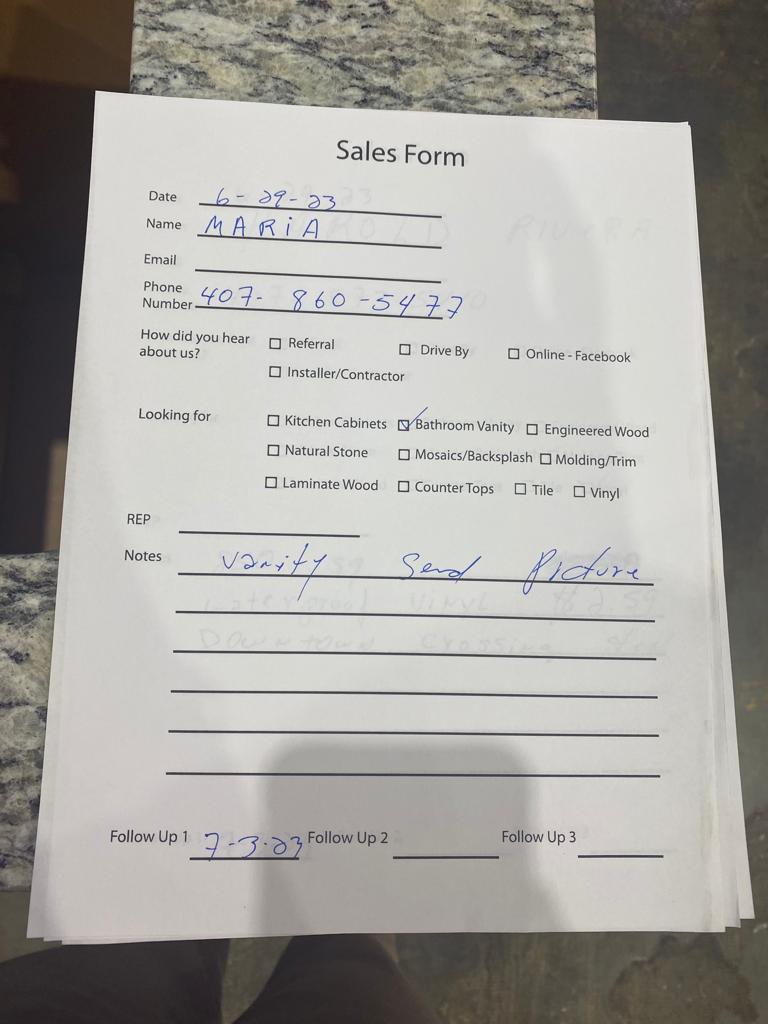 Sales Form
Date 6-29-23
Name MARiA
Email
Phone
Number 407- 860-5477
How did you hear
about us?
☐ Referral ☐ Drive By ☐ Online - Facebook
☐ Installer/Contractor
Looking for ☐ Kitchen Cabinets ☑ Bathroom Vanity ☐ Engineered Wood
☐ Natural Stone ☐ Mosaics/Backsplash ☐ Molding/Trim
☐ Laminate Wood ☐ Counter Tops ☐ Tile ☐ Vinyl
REP
Notes Vanity Send Picture
Follow Up 1 7-3-23 Follow Up 2 Follow Up 3